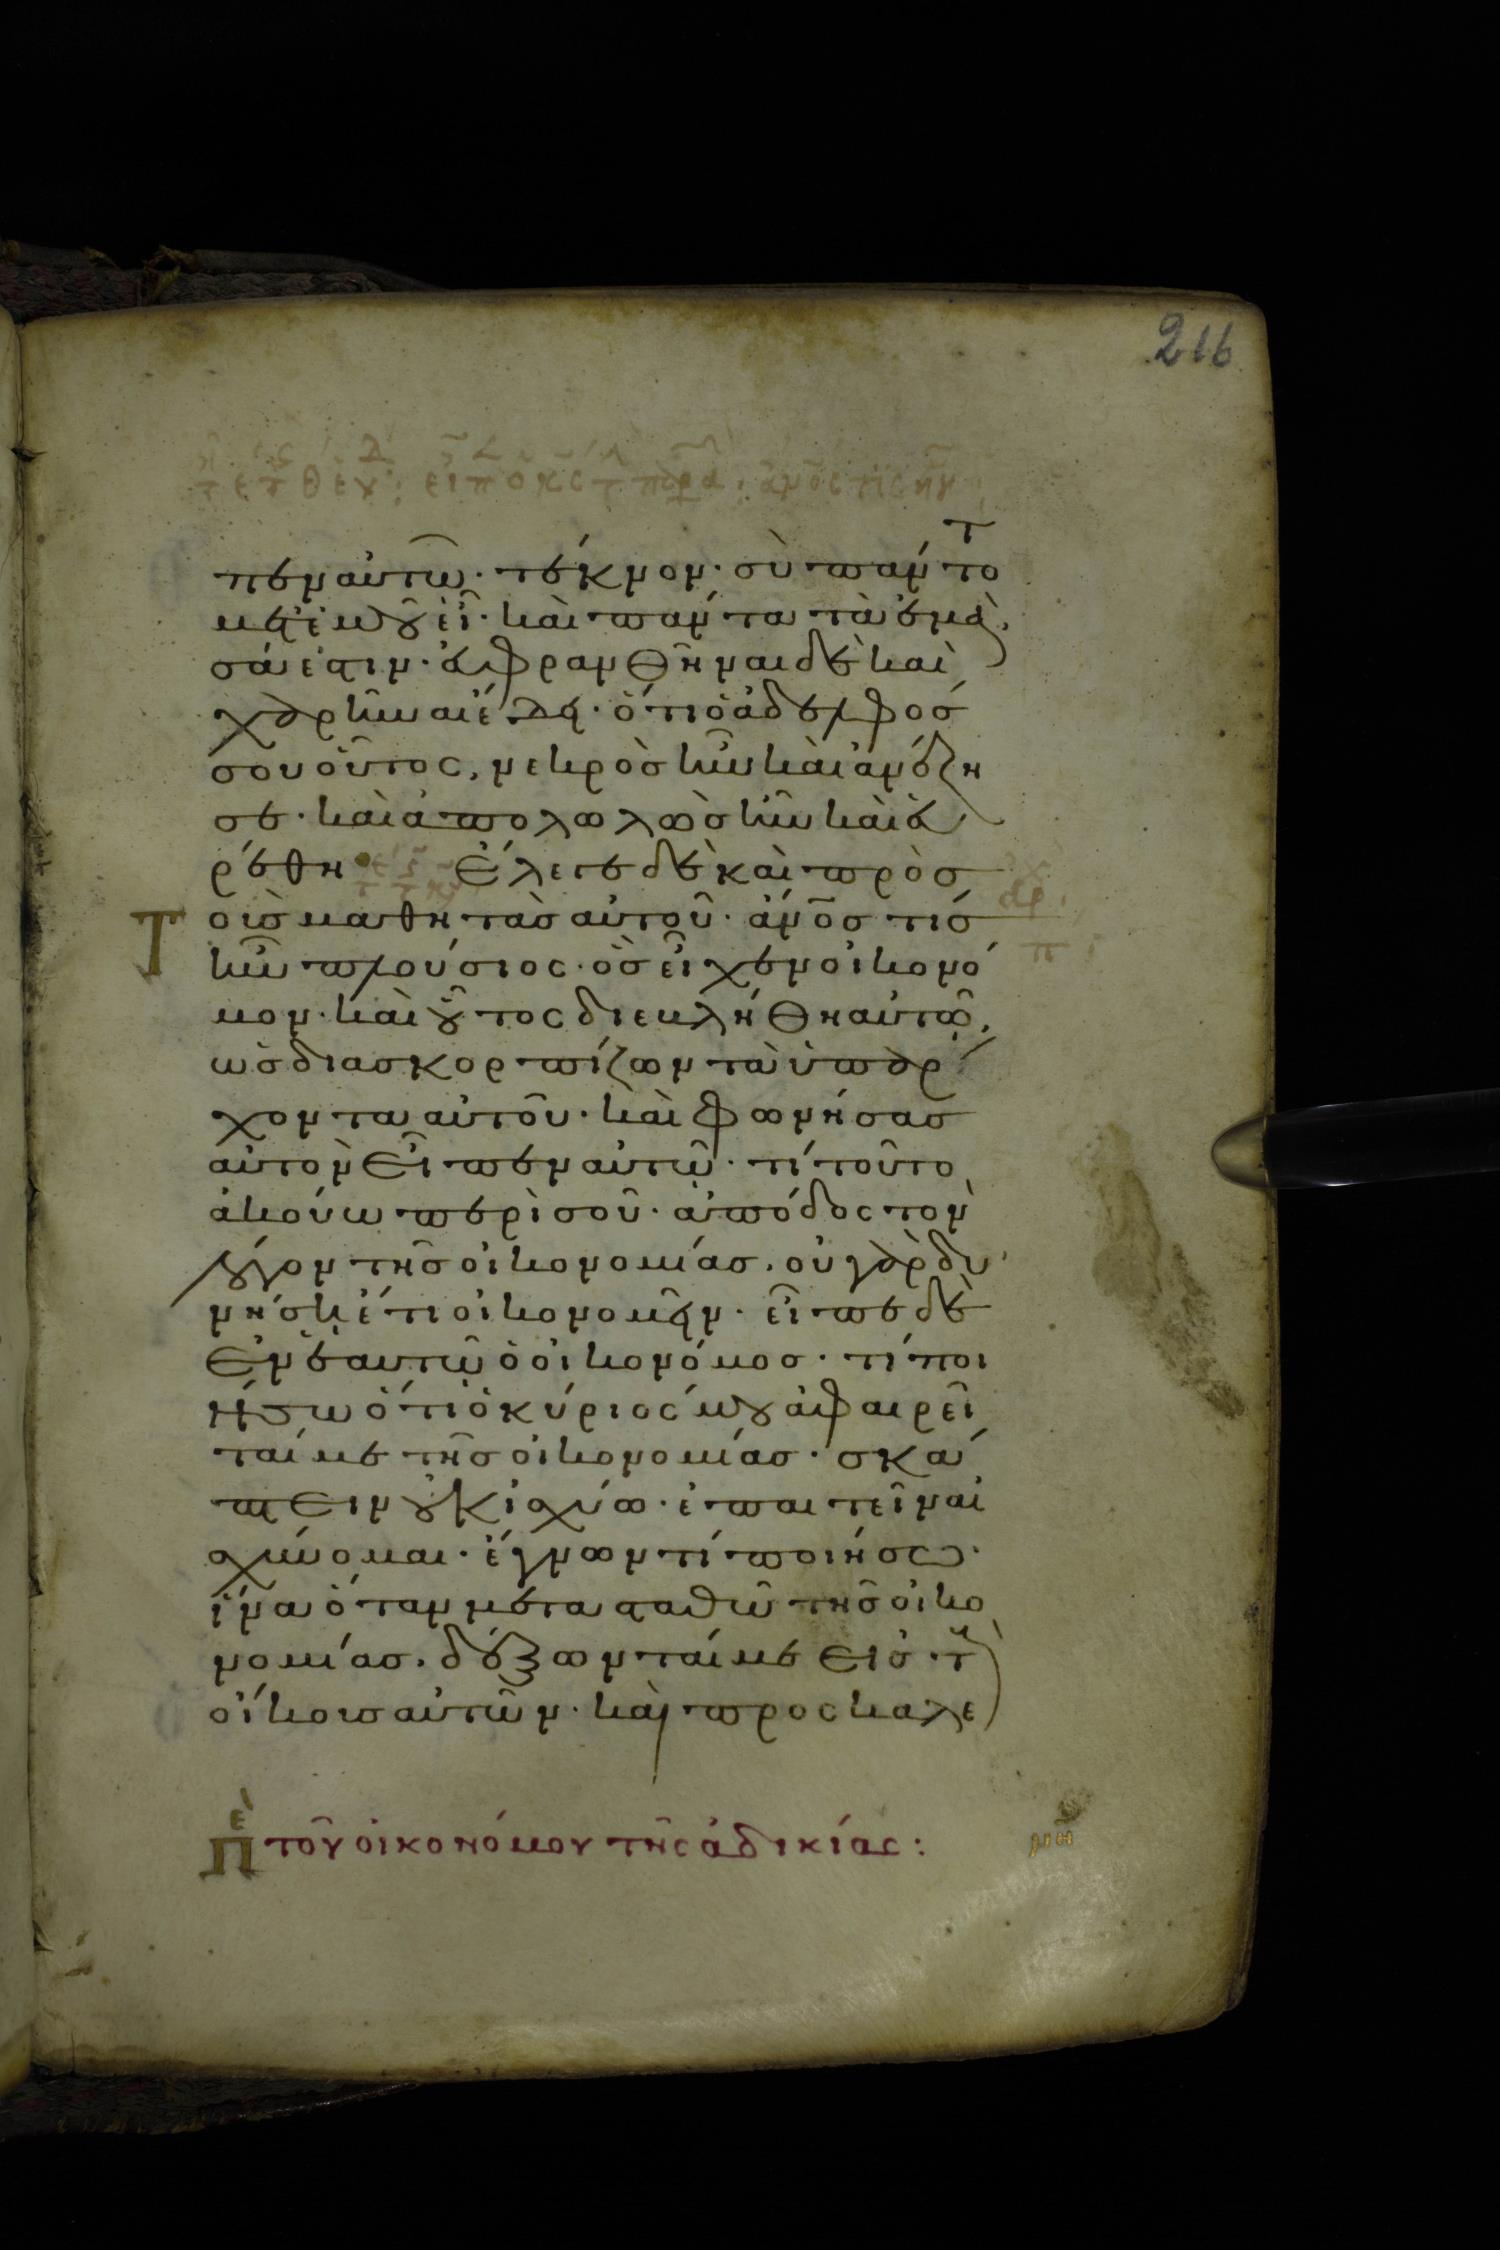 216
πεν αὐτῶ· τέκνον· σὺ πάντο
τ
με ἐμοῦ εἶ· καὶ πάντα τὰ ἐμὰ,
σά ἐστιν· εὐφρανθῆναι δὲ καὶ
χαρῆναι ἔδει· ὅτι ὁ ἀδελφόσ
σου οὗτος, νεκρὸσ ἦν καὶ ἀνέζη
σε· καὶ ἀπολωλὼσ ἦν καὶ εὑ
ρέθη Ἔλεγε δὲ καὶ πρὸσ
Τοὺσ μαθητὰσ αὐτοῦ· ἄν̅οσ τίσ
ἦν πλούσιος· ὃσ εἶχεν οἰκονό
μον· καὶ οὗτος διεβλήθη αὐτῶ,
ὡσ διασκορπίζων τὰ ὑπάρ
χοντα αὐτοῦ· καὶ φωνήσασ
αὐτὸν εἶπεν αὐτῶ· τί τοῦτο
ἀκούω περὶ σοῦ· ἀπόδος τὸν
λόγον τῆσ οἰκονομίασ. οὐ γὰρ δυ
νήση ἔτι οἰκονομεῖν· εἶπε δὲ
ἐν ἑαυτῶ ὁ οἰκονόμοσ· τί ποι
ήσω ὅτι ὁ κύριός μου ἀφαιρεῖ
ταί με τῆσ οἰκονομίασ· σκά
πτειν οὐκ ἰσχύω· ἐπαιτεῖν αἰ
σχύνομαι· ἔγνων τί ποιήσω·
ἵνα ὅταν μετασταθῶ τῆσ οἰκο
νομίασ. δέξωνταί με εἰσ τ(οὺς)
οἴκουσ αὐτῶν· καὶ προσκαλε
Πε τοῦ οἰκονόμου τῆς ἀδικίας: